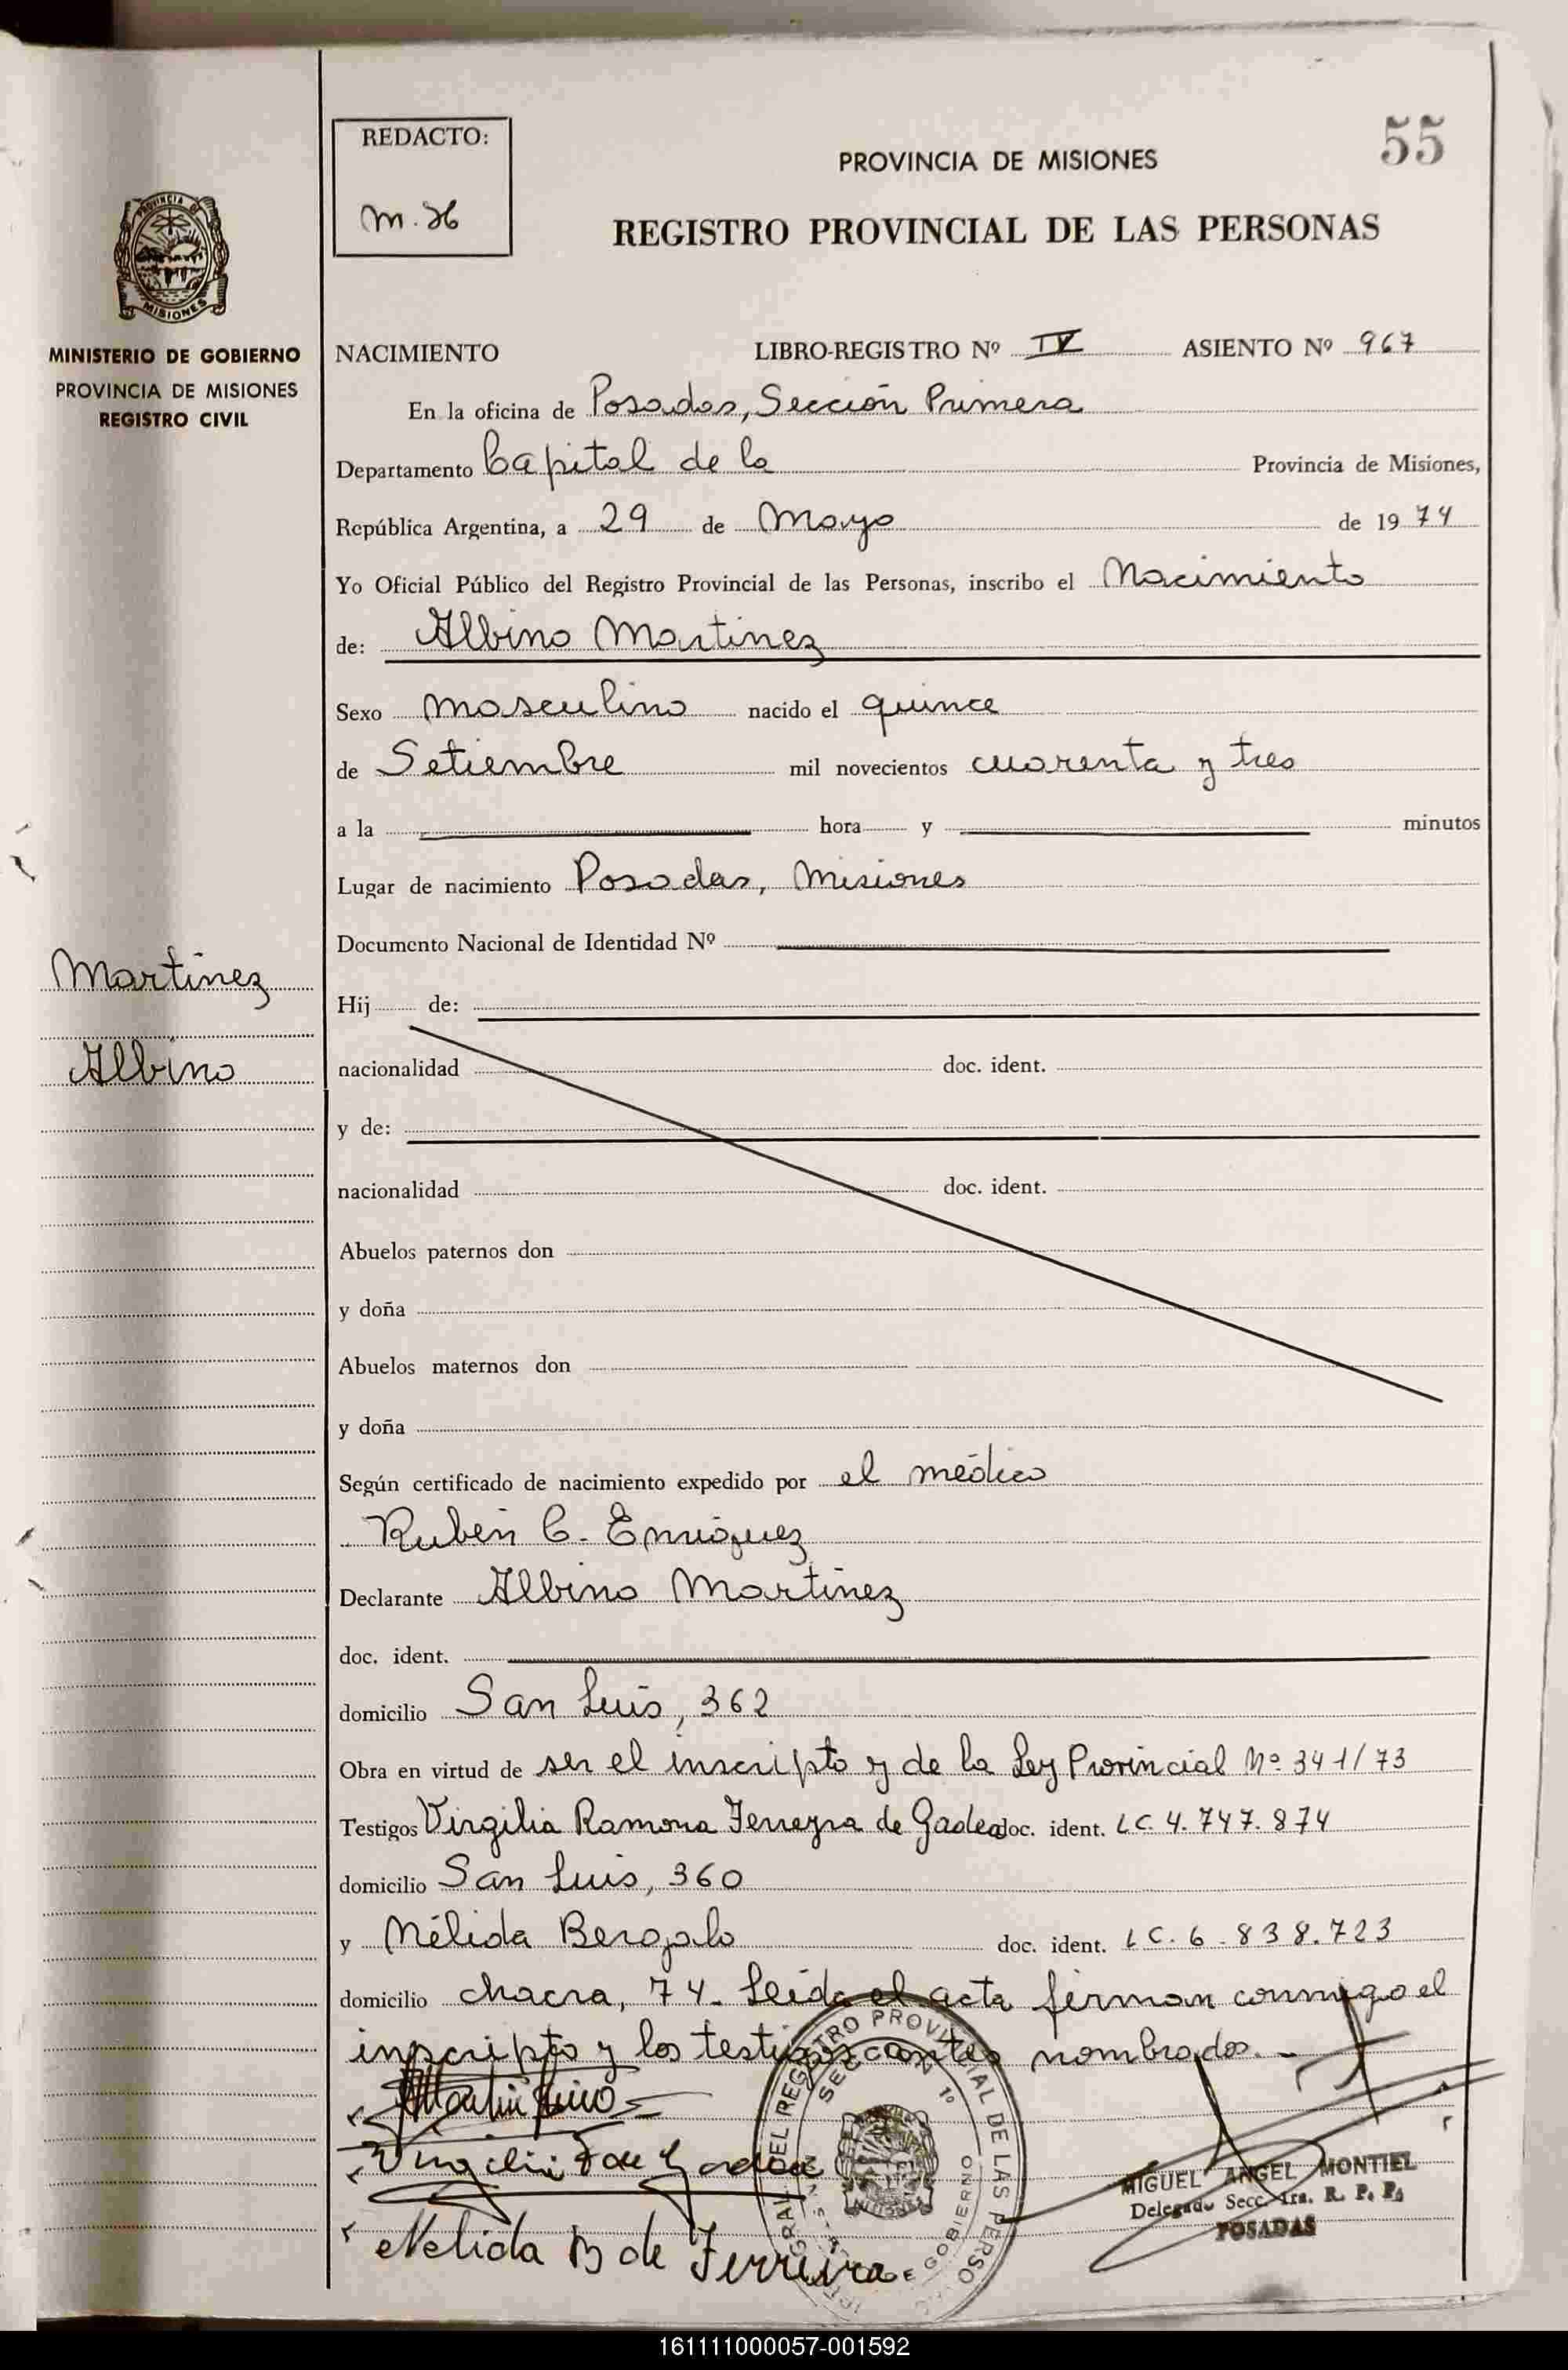 55
REDACTO:
M. H
PROVINCIA DE MISIONES
REGISTRO PROVINCIAL DE LAS PERSONAS
PROVINCIA DE
MISIONES
MINISTERIO DE GOBIERNO
PROVINCIA DE MISIONES
REGISTRO CIVIL
NACIMIENTO LIBRO-REGISTRO Nº IV ASIENTO Nº 967
En la oficina de Posadas, Sección Primera
Departamento Capital de la Provincia de Misiones,
República Argentina, a 29 de Mayo de 19 74
Yo Oficial Público del Registro Provincial de las Personas, inscribo el Nacimiento
de: Albino Martinez
Sexo masculino nacido el quince
de Setiembre mil novecientos cuarenta y tres
a la hora y minutos
Lugar de nacimiento Posadas, Misiones
Documento Nacional de Identidad Nº
Martinez
Albino
Hij de:
nacionalidad doc. ident.
y de:
nacionalidad doc. ident.
Abuelos paternos don
y doña
Abuelos maternos don
y doña
Según certificado de nacimiento expedido por el médico
Rubén C. Enriquez
Declarante Albino Martinez
doc. ident.
domicilio San Luis, 362
Obra en virtud de ser el inscripto y de la Ley Provincial Nº 341/73
Testigos Virgilia Ramona Ferreyra de Gadea doc. ident. LC. 4.747.874
domicilio San Luis, 360
y Nélida Bergalo doc. ident. LC. 6.838.723
domicilio chacra, 74. Leída el acta firman conmigo el
inscripto y los testigos antes nombrados. -
REGISTRO PROVINCIAL DE LAS
SECCION 1º
GOBIERNO
MIGUEL ANGEL MONTIEL
Delegado Secc. 1ra. R. P. P.
POSADAS
Nelida B de Ferreira
161111000057-001592